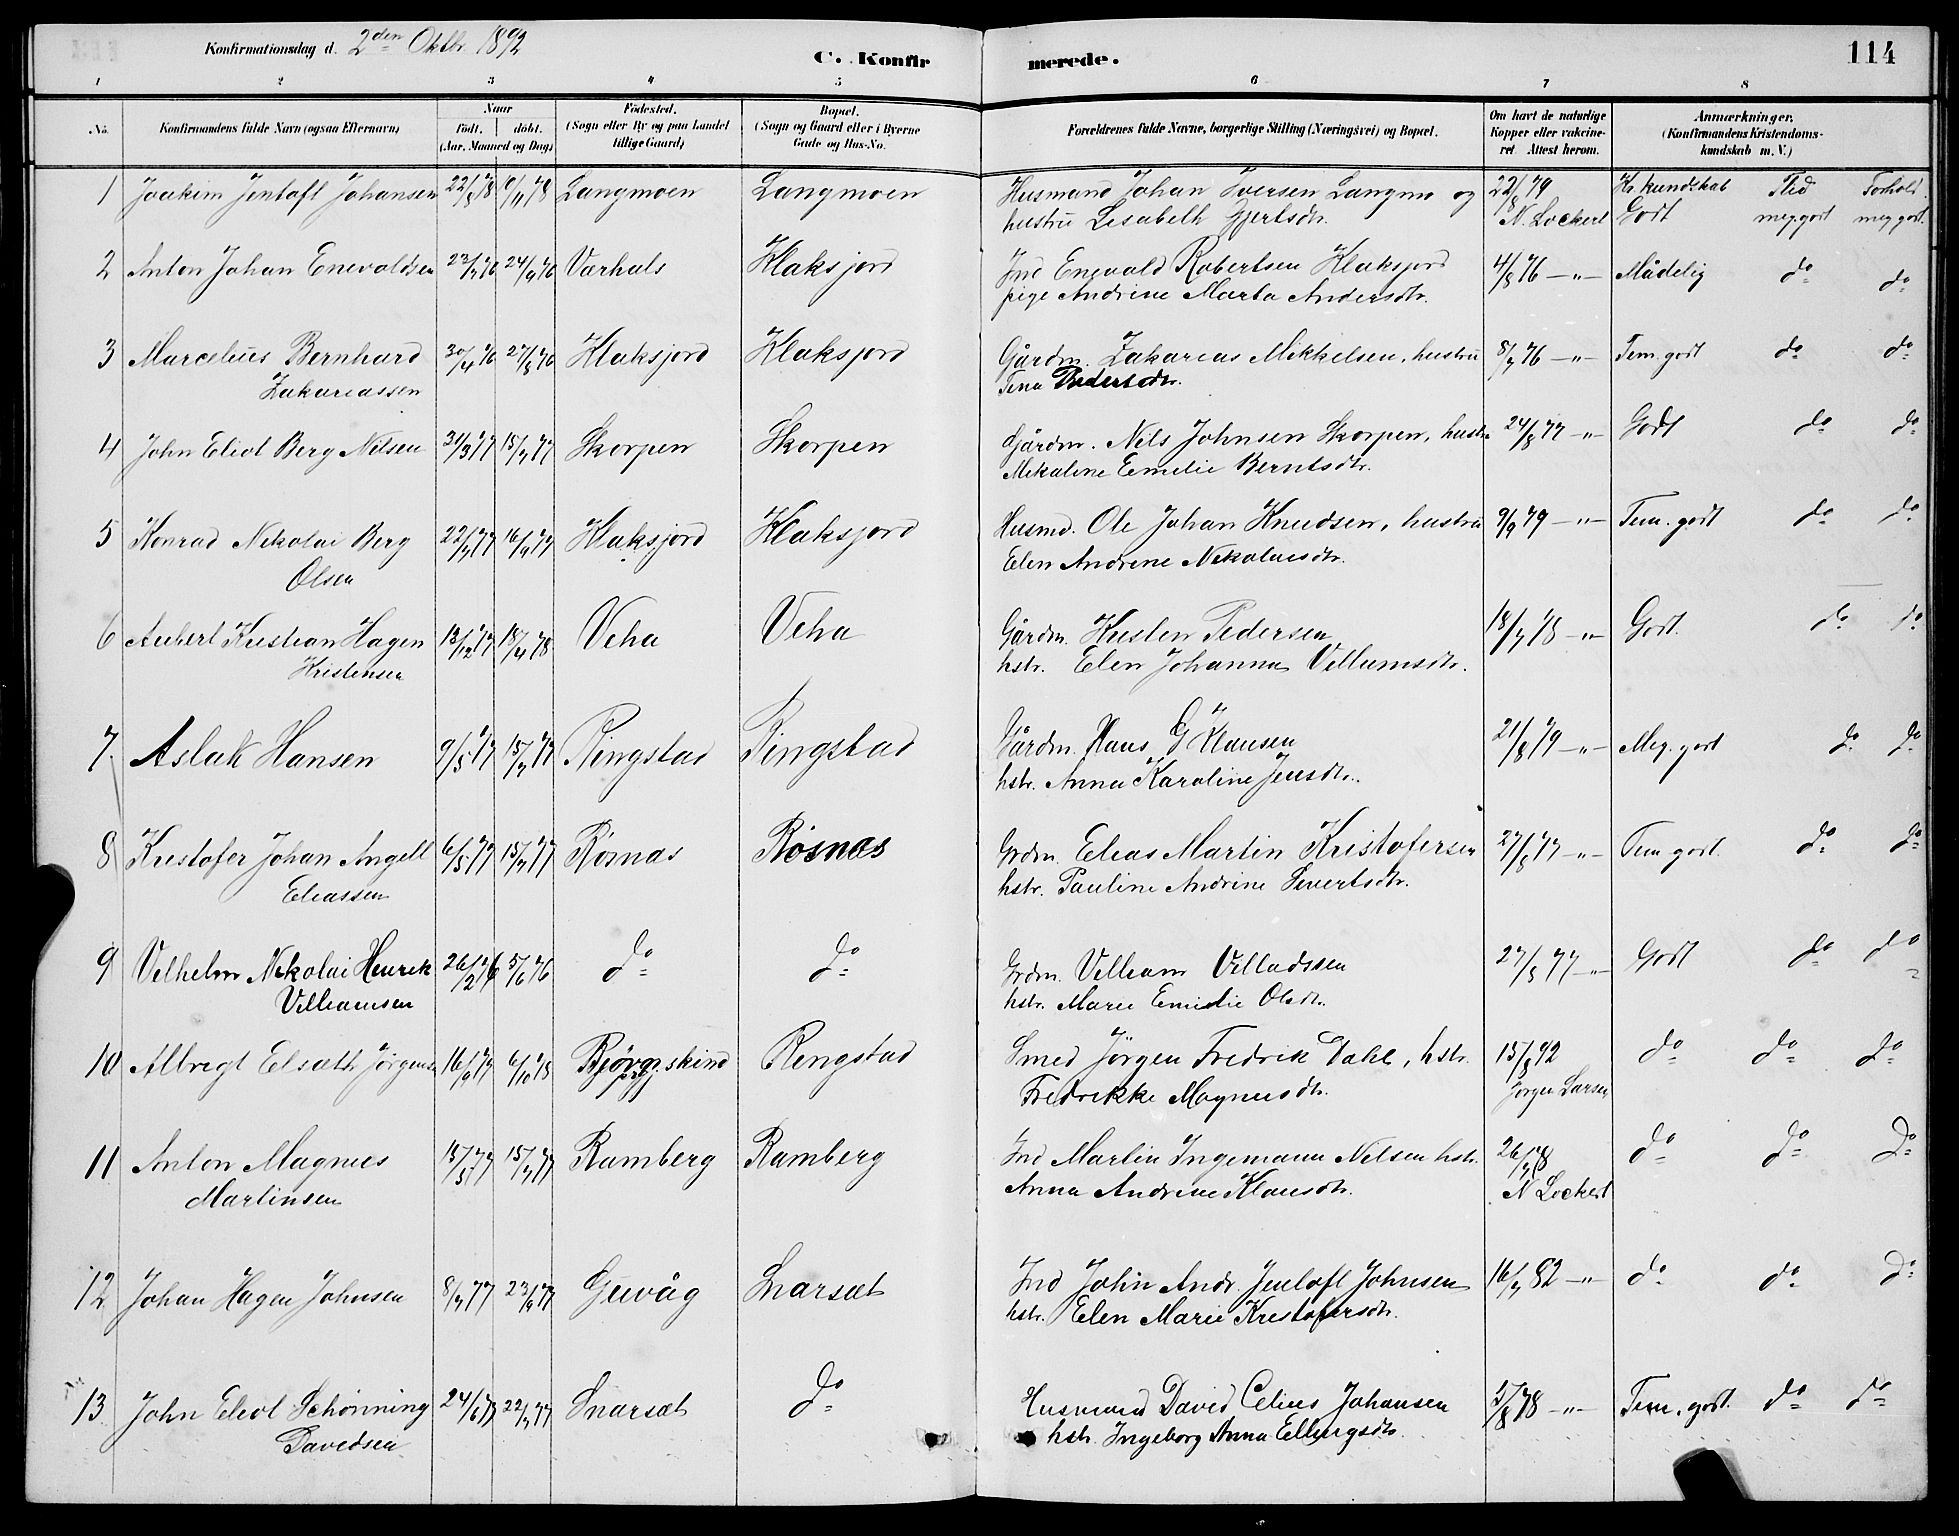 Konfirmationsdag d. 2den Oktbr. 1892
C. Konfirmerede.
114
1 2 3 4 5 6 7 8
No.
Konfirmandens fulde Navn (ogsaa Efternavn)
Naar
født. døbt.
(Aar, Maaned og Dag)
Fødested.
(Sogn eller By og paa Landet
tillige Gaard)
Bopæl.
(Sogn og Gaard eller i Byerne
Gade og Hus-No.
Forældrenes fulde Navne, borgerlige Stilling (Næringsvei) og Bopæl.
Om havt de naturlige
Kopper eller vakcine-
ret Attest herom.
Anmærkninger.
(Konfirmandens Kristendoms-
kundskab m. V.)
1 Joakim Jentoft Johansen Langmoen Langmoen Husmand Johan Iversen Langmo og 22/8 79 Kr. kundskab Flid Forhold
hustru Lisabeth Gjertsdr. N. Lockert Godt meg. godt meg. godt.
2 Anton Johan Enevoldsen 23/2 76 24/9 76 Varhals Klaksjord Ind Enevold Robertsen Klaksjord 4/8 76 -"- Mådelig do do
pige Andrine Marta Andersdtr.
3 Marcelius Bernhard 30/4 76 27/8 76 Klaksjord Klaksjord Gårdm. Zakarias Mikkelsen, hustru 8/7 76 -"- Tem. godt do do
Zakariassen Tina Pedersdtr.
4 John Eliot Berg Nilsen 31/3 77 15/7 77 Skorpen Skorpen Gårdm. Nils Johnsen Skorpen, hustr 24/8 77 -"- Godt do do
Mikaline Emilie Berntsdtr.
5 Konrad Nikolai Berg 22/7 77 16/9 77 Klaksjord Klaksjord Husmd. Ole Johan Knudsen, hustru 9/9 79 -"- Tem. godt do do
Olsen Elen Andrine Nikolaisdtr.
6 Aubert Kristian Hagen 13/12 77 18/4 78 Veha Veha Gårdm. Kristen Pedersen 18/7 78 -"- Godt. do do
Kristensen hstr. Elen Johanna Villumsdtr.
7. Aslak Hansen 9/5 77 15/7 77 Ringstad Ringstad Gårdm. Hans G Klausen 21/8 79 -"- Meg. godt do do
hstr. Anna Karoline Jensdtr.
8 Kristofer Johan Angell 6/5 77 15/7 77 Rösnas Rösnas Grdm. Elias Martin Kristofersen 27/8 77 -"- Tem godt. do do
Eliassen hstr. Pauline Andrine Sivertsdtr.
9 Velhelm Nikolai Henrik 26/2 76 5/6 76 do do Grdm. Villiam Villadssen 27/8 77 -"- Godt do do
Villiamsen hstr. Marie Emilie Olsdtr.
10 Albregt Elsæth Jörgens 16/9 77 6/10 78 Bjørgskind Ringstad Smed Jörgen Fredrik Dahl, hstr. 15/8 92 do do do
Fredrikke Magnusdtr. Jörgen Larsen
11 Anton Magnus 15/5 77 15/7 77 Ramberg Ramberg Ind Martin Ingemann Nilsen hstr. do do do
Martinsen Anna Andrine Klausdtr. N Lockert
12 Johan Hagen Johnsen 8/7 77 23/9 77 Guvåg Snarset Ind John Andr. Jentoft Johnsen 16/7 82 -"- do do do
hstr. Elen Marie Kristofersdtr.
13. John Eliot Schönning 24/6 77 22/7 77 Snarset do Husmand David Celius Johansen 78 -"- Tem. godt. do do
Davidsen hstr. Ingeborg Anna Ellingsdtr.